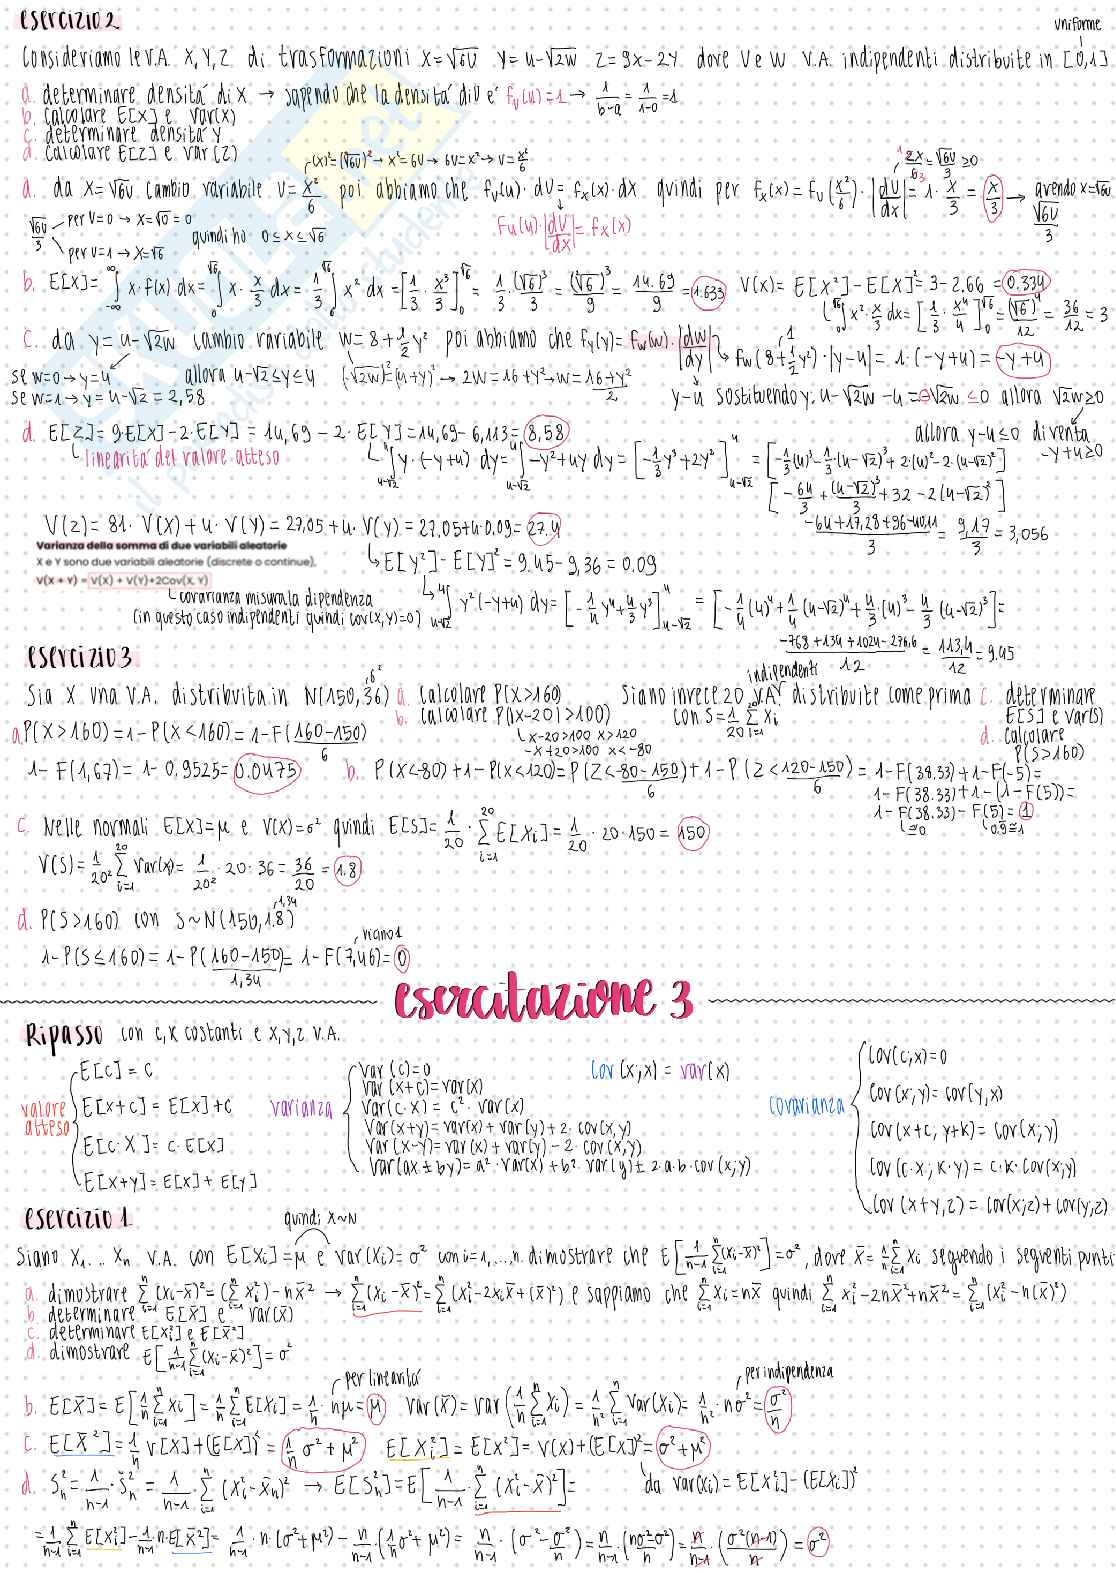 esercizio 2
uniforme
Consideriamo le V.A. X, Y, Z di trasformazioni X=√6U Y=4-√2W Z=9X-2Y dove U e W V.A. indipendenti distribuite in [0,1]
a. determinare densità di X → sapendo che la densità di U è fu(u)=1 → 1/(b-a) = 1/(1-0) = 1
b. calcolare E[X] e Var(X)
c. determinare densità Y
d. calcolare E[Z] e Var(Z)
(X)²=(√6U)² → X²=6U → 6U=X² → U=X²/6
a. da X=√6U cambio variabile U=X²/6 poi abbiamo che fu(u)·dU=fx(x)·dx quindi per fx(x)=fu(x²/6)·|dU/dx|=1·x/3=x/3 → avendo x=√6U √6U/3
2X/6 = √6U/3 ≥0
fu(u)·|dU/dx|=fx(x)
√6U/3 per U=0 → X=√0=0
per U=1 → X=√6
quindi ho 0≤x≤√6
b. E[X]=∫ x·f(x) dx=∫ x·x/3 dx=1/3 ∫ x² dx=[1/3·x³/3]=1/3·(√6)³/3=(√6)³/9=14.69/9=1.633 V(X)=E[X²]-E[X]²=3-2.66=0.334
∫ x²·x/3 dx=[1/3·x⁴/4]=(√6)⁴/12=36/12=3
c. da y=4-√2W cambio variabile W=8+1/2y² poi abbiamo che fy(y)=fw(w)·|dw/dy| → fw(8+1/2y²)·|y-4|=1·(-y+4)=-y+4
se w=0 → y=4
se w=1 → y=4-√2=2,58
allora 4-√2≤y≤4
(-√2W)²=(4+y)² → 2W=16+y² → W=16+y²/2
y-4 sostituendo y: 4-√2W-4=-√2W ≤0 allora √2W≥0
allora y-4≤0 diventa -y+4≥0
d. E[Z]=9·E[X]-2·E[Y]=14,69-2·E[Y]=14,69-6,113=8,58
linearità del valore atteso
∫ y·(-y+4) dy=∫ -y²+4y dy=[-1/3y³+2y²]=[-1/3(4)³-1/3·(4-√2)³+2·(4)²-2·(4-√2)²]
[-64/3+(4-√2)³/3+32-2(4-√2)²]
-64+17,28+96-40,11/3=9,17/3=3,056
V(Z)=81·V(X)+4·V(Y)=27,05+4·V(Y)=27,05+4·0.09=27.4
Varianza della somma di due variabili aleatorie
X e Y sono due variabili aleatorie (discrete o continue),
V(X + Y) = V(X) + V(Y)+2Cov(X, Y)
E[Y²]-E[Y]²=9.45-9,36=0.09
covarianza misura la dipendenza
(in questo caso indipendenti quindi cov(X,Y)=0)
∫ y²(-y+4) dy=[-1/4y⁴+4/3y³]=[-1/4(4)⁴+1/4(4-√2)⁴+4/3(4)³-4/3(4-√2)³]=
-768+134+1024-276,6/12=113,4/12=9.45
esercizio 3
indipendenti
Sia X una V.A. distribuita in N(150,36) a. calcolare P(X>160) Siano invece 20 V.A. distribuite come prima c. determinare
b. calcolare P(|X-20|>100) con S=1/20 Σ Xi E[S] e Var(S)
X-20>100 X>120
-X+20>100 X<-80
d. calcolare P(S>160)
a P(X>160)=1-P(X<160)=1-F(160-150/6)
1-F(1,67)=1-0,9525=0.0475 b. P(X<-80)+1-P(X<120)=P(Z<-80-150/6)+1-P(Z<120-150/6)=1-F(38.33)+1-F(-5)=
1-F(38.33)+1-(1-F(5))=
1-F(38.33)-F(5)=1
≅0 0.9≅1
c. Nelle normali E[X]=μ e V(X)=σ² quindi E[S]=1/20·Σ E[Xi]=1/20·20·150=150
V(S)=1/20² Σ Var(x)=1/20²·20·36=36/20=1.8
1,34
d. P(S>160) con S~N(150,1.8)
vicino 1
1-P(S≤160)=1-P(160-150/1,34)=1-F(7,46)=0
esercitazione 3
Ripasso con c,k costanti e x,y,z V.A.
valore atteso
E[c]=c
E[x+c]=E[x]+c
E[c·X]=c·E[x]
E[x+y]=E[x]+E[y]
varianza
Var(c)=0
Var(x+c)=Var(x)
Var(c·x)=c²·Var(x)
Var(x+y)=Var(x)+Var(y)+2·cov(x,y)
Var(x-y)=Var(x)+Var(y)-2·cov(x,y)
Var(ax±by)=a²·Var(x)+b²·Var(y)±2·a·b·cov(x;y)
cov(x;x)=var(x)
covarianza
Cov(c;x)=0
Cov(x;y)=cov(y,x)
Cov(x+c, y+k)=cov(x;y)
Cov(c·x; k·y)=c·k·cov(x;y)
Cov(x+y,z)=cov(x;z)+cov(y;z)
esercizio 1
quindi X~N
Siano X₁...Xn V.A. con E[Xi]=μ e Var(Xi)=σ² con i=1,...,n. dimostrare che E[1/n-1 Σ(Xi-x̄)²]=σ², dove x̄=1/n Σ Xi seguendo i seguenti punti
a. dimostrare Σ(Xi-x̄)²=(Σ Xi²)-nx̄² → Σ(Xi-x̄)²=Σ(Xi²-2Xix̄+(x̄)²) e sappiamo che Σ Xi=nx̄ quindi Σ Xi²-2nx̄²+nx̄²=Σ(Xi²-n(x̄)²)
b determinare E[x̄] e Var(x̄)
c. determinare E[Xi²] e E[x̄²]
d. dimostrare E[1/n-1 Σ(Xi-x̄)²]=σ²
per linearità
per indipendenza
b. E[x̄]=E[1/n Σ Xi]=1/n Σ E[Xi]=1/n·nμ=μ Var(x̄)=Var(1/n Σ Xi)=1/n² Σ Var(Xi)=1/n²·nσ²=σ²/n
c. E[x̄²]=1/n V[X]+(E[X])²=1/n σ²+μ² E[Xi²]=E[X²]=V(X)+(E[X])²=σ²+μ²
da Var(Xi)=E[Xi²]-(E[Xi])²
d. Sn²=1/n-1·S̃n²=1/n-1·Σ(Xi²-x̄n)² → E[Sn²]=E[1/n-1·Σ(Xi²-x̄)²]=
=1/n-1 Σ E[Xi²]-1/n-1·n·E[x̄²]=1/n-1·n·(σ²+μ²)-n/n-1·(1/n σ²+μ²)=n/n-1·(σ²-σ²/n)=n/n-1·(nσ²-σ²/n)=n/n-1·(σ²(n-1)/n)=σ²